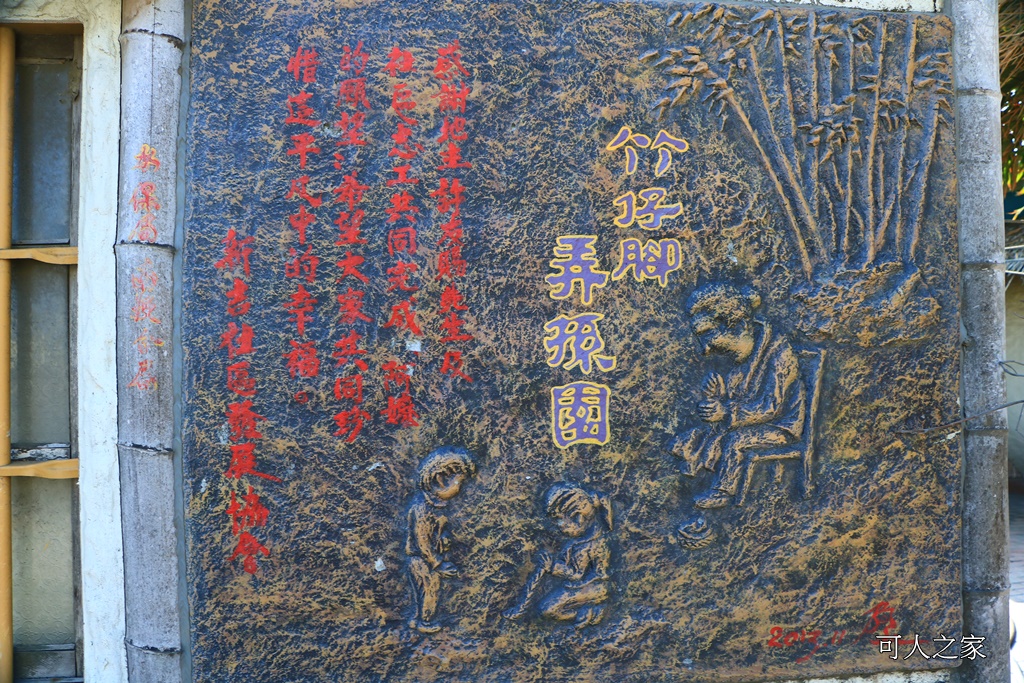 竹仔脚
弄孫園
感謝地主許右賜先生及
社區志工共同完成阿嬤
的願望；希望大家共同珍
惜這平凡中的幸福。
新吉社區發展協會
2013.11
可人之家